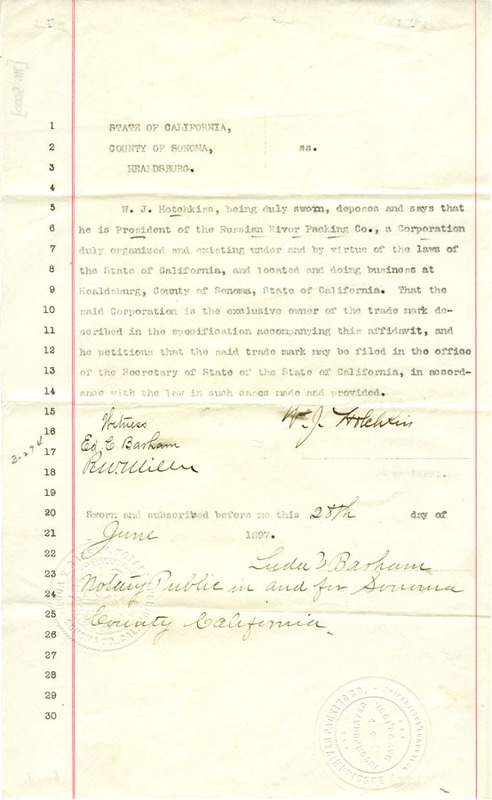 1 STATE OF CALIFORNIA,
2 COUNTY OF SONOMA, ss.
3 HEALDSBURG.
4
5 W. J. Hotchkiss, being duly sworn, deposes and says that
6 he is President of the Russian River Packing Co., a Corporation
7 duly organized and existing under and by virtue of the laws of
8 the State of California, and located and doing business at
9 Healdsburg, County of Sonoma, State of California. That the
10 said Corporation is the exclusive owner of the trade mark de-
11 scribed in the specification accompanying this affidavit, and
12 he petitions that the said trade mark may be filed in the office
13 of the Secretary of State of the State of California, in accord-
14 ance with the law in such cases made and provided.
15
16 Witness W. J. Hotchkiss
17 Ed. C. Barham
18 R.W. Miller
19
20 Sworn and subscribed before me this 28th day of
21 June 1897.
22 Barham
23 Notary Public in and for Sonoma
24
25 County California.
26
27
28
29
30